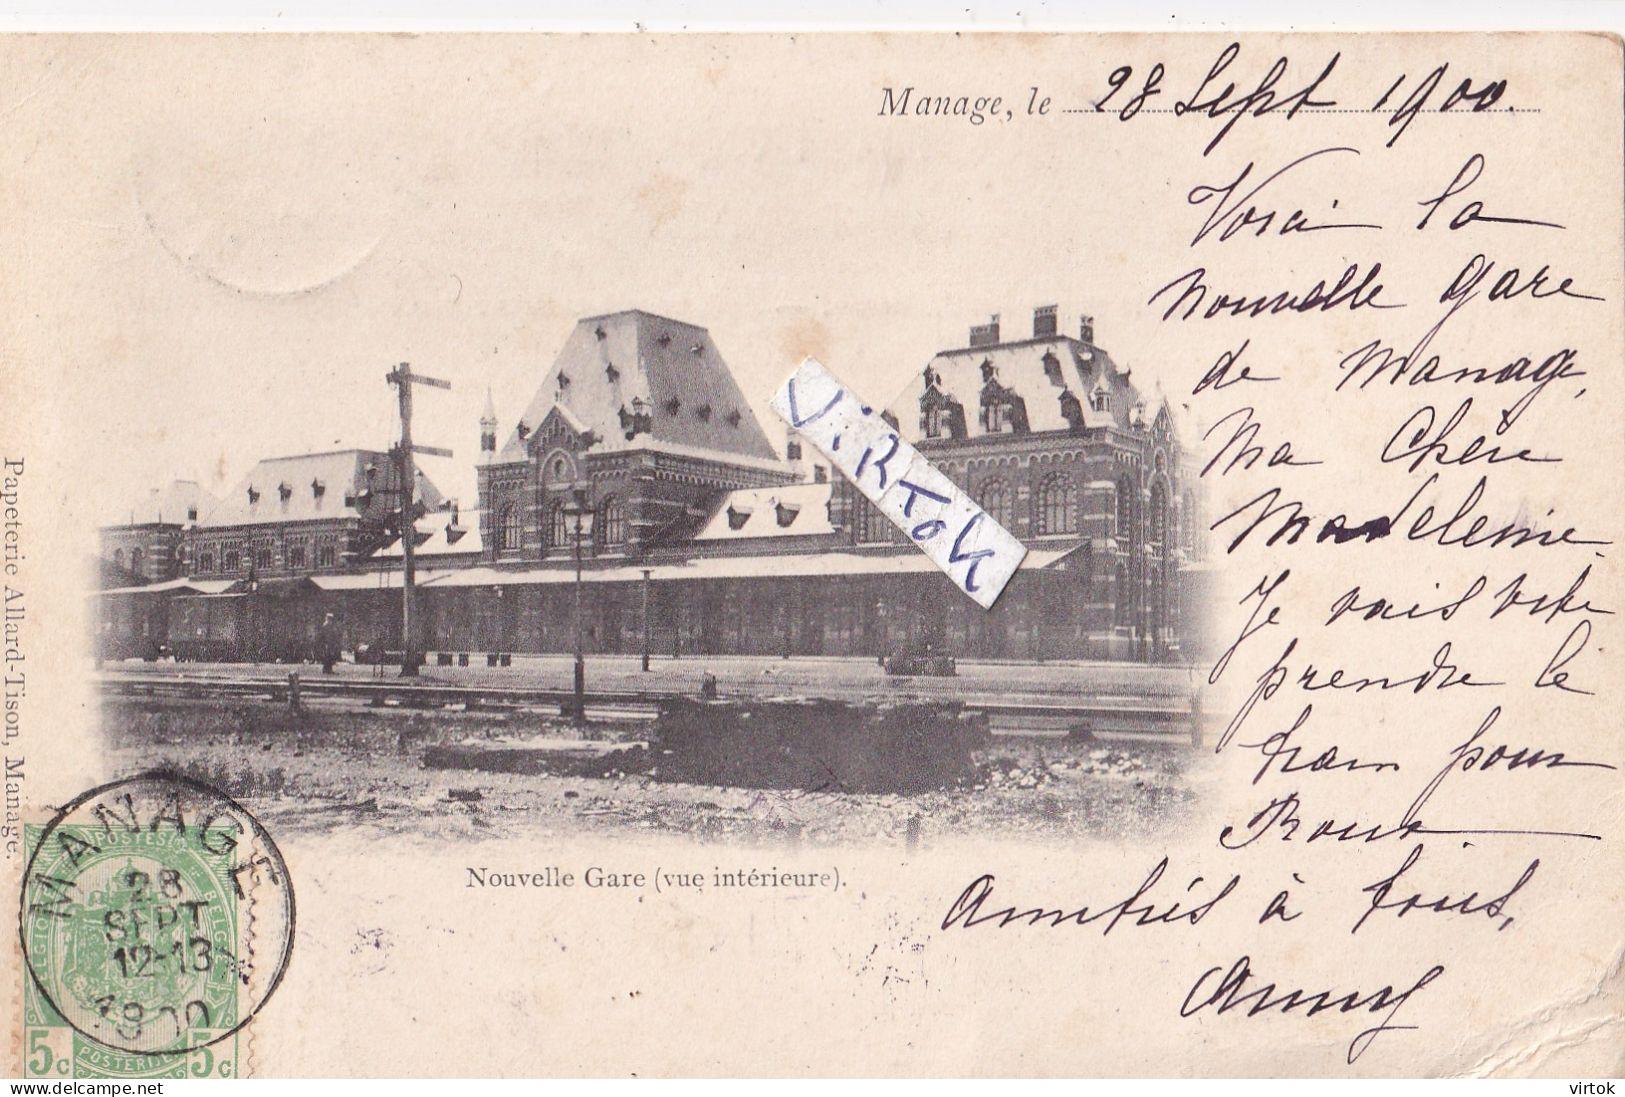 Manage, le 28 Sept 1900.
Voici la
nouvelle gare
de Manage,
Ma Chère
Madeleine.
Je vais vite
prendre le
train pour
Roux
Amitiés à tous,
Anny
ViRTok
Nouvelle Gare (vue intérieure).
Papeterie Allard-Tison, Manage.
MANAGE
28
SEPT
12-13
1900
POSTES
BELGIQUE
BELGIË
5c
POSTERIJEN
5c
delcampe.net
virtok